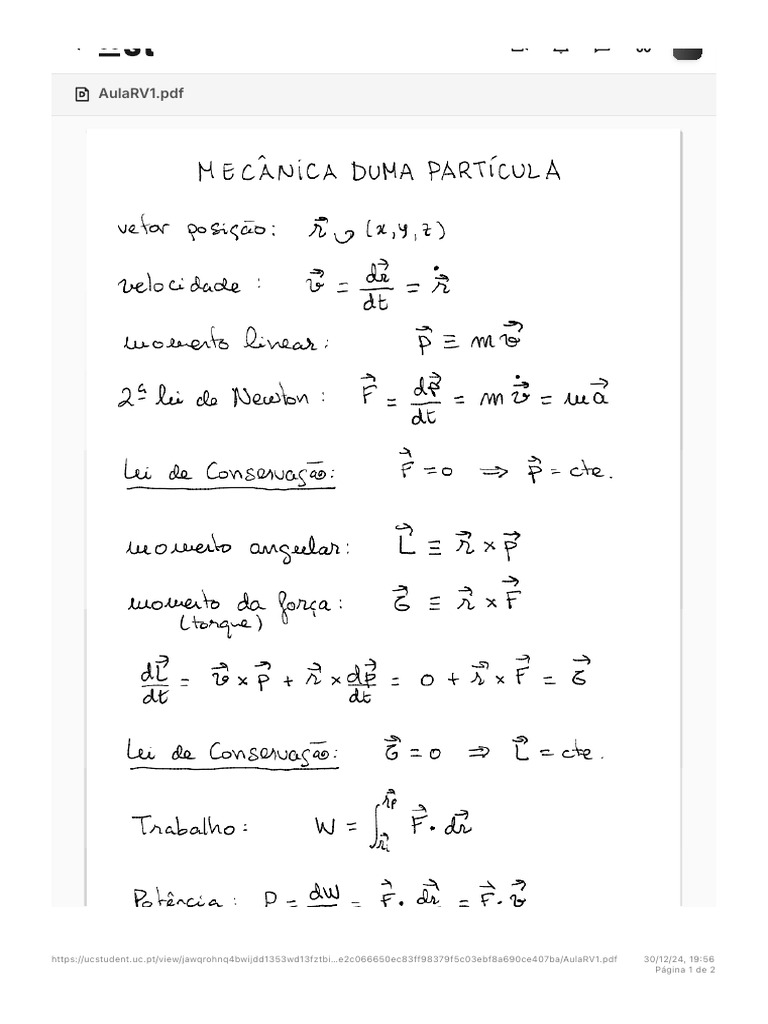 AulaRV1.pdf
MECÂNICA DUMA PARTÍCULA
vetor posição: r⃗ ⤻ (x,y,z)
velocidade: v⃗ = dr⃗/dt = ṙ⃗
momento linear: p⃗ ≡ mv⃗
2ª lei de Newton: F⃗ = dp⃗/dt = m v̇⃗ = ma⃗
Lei de Conservação: F⃗ = 0 ⇒ p⃗ = cte.
momento angular: L⃗ ≡ r⃗ × p⃗
momento da força: τ⃗ ≡ r⃗ × F⃗
(torque)
dL⃗/dt = v⃗ × p⃗ + r⃗ × dp⃗/dt = 0 + r⃗ × F⃗ = τ⃗
Lei de Conservação: τ⃗ = 0 ⇒ L⃗ = cte.
Trabalho: W = ∫_{r⃗i}^{r⃗f} F⃗ · dr⃗
Potência: P = dW = F⃗ · dr⃗ = F⃗ · v⃗
https://ucstudent.uc.pt/view/jawqrohnq4bwijdd1353wd13fztbi…e2c066650ec83ff98379f5c03ebf8a690ce407ba/AulaRV1.pdf 30/12/24, 19:56
Página 1 de 2